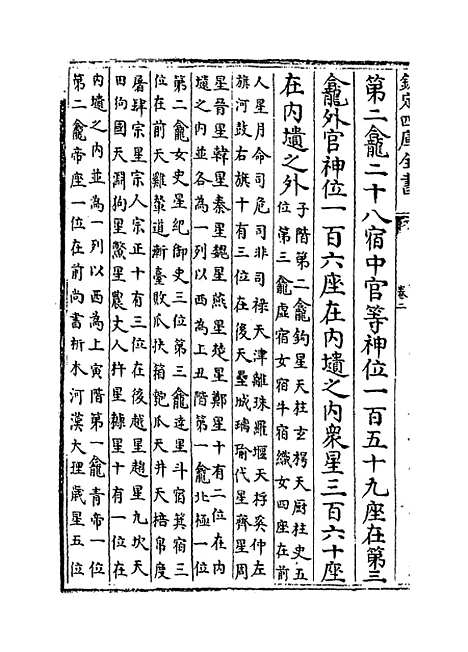 欽定四庫全書
卷二
第二龕二十八宿中官等神位一百五十九座在第三
龕外官神位一百六座在内壝之内衆星三百六十座
在内壝之外子階第二龕鉤星天柱玄枵天厨柱史五
位第三龕虚宿女宿牛宿織女四座在前
人星司命司危司非司禄天津離珠羅堰天桴奚仲左
旗河鼓右旗十有三位在後天壘城璃瑜代星齊星周
星晉星韓星秦星魏星燕星楚星鄭星十有二位在内
壝之内並各為一列以西為上丑階第一龕北極一位
第二龕女史星紀御史三位第三龕建星斗宿箕宿三
位在前天雞輦道漸臺敗瓜扶筐匏瓜天弁天棓帛度
屠肆宗星宗人宗正十有三位在後越星趙星九坎天
田狗國天淵狗星鱉星農丈人杵星糠星十有一位在
内壝之内並為一列以西為上寅階第一龕青帝一位
第二龕帝座一位在前尚書析木河漢大理歲星五位